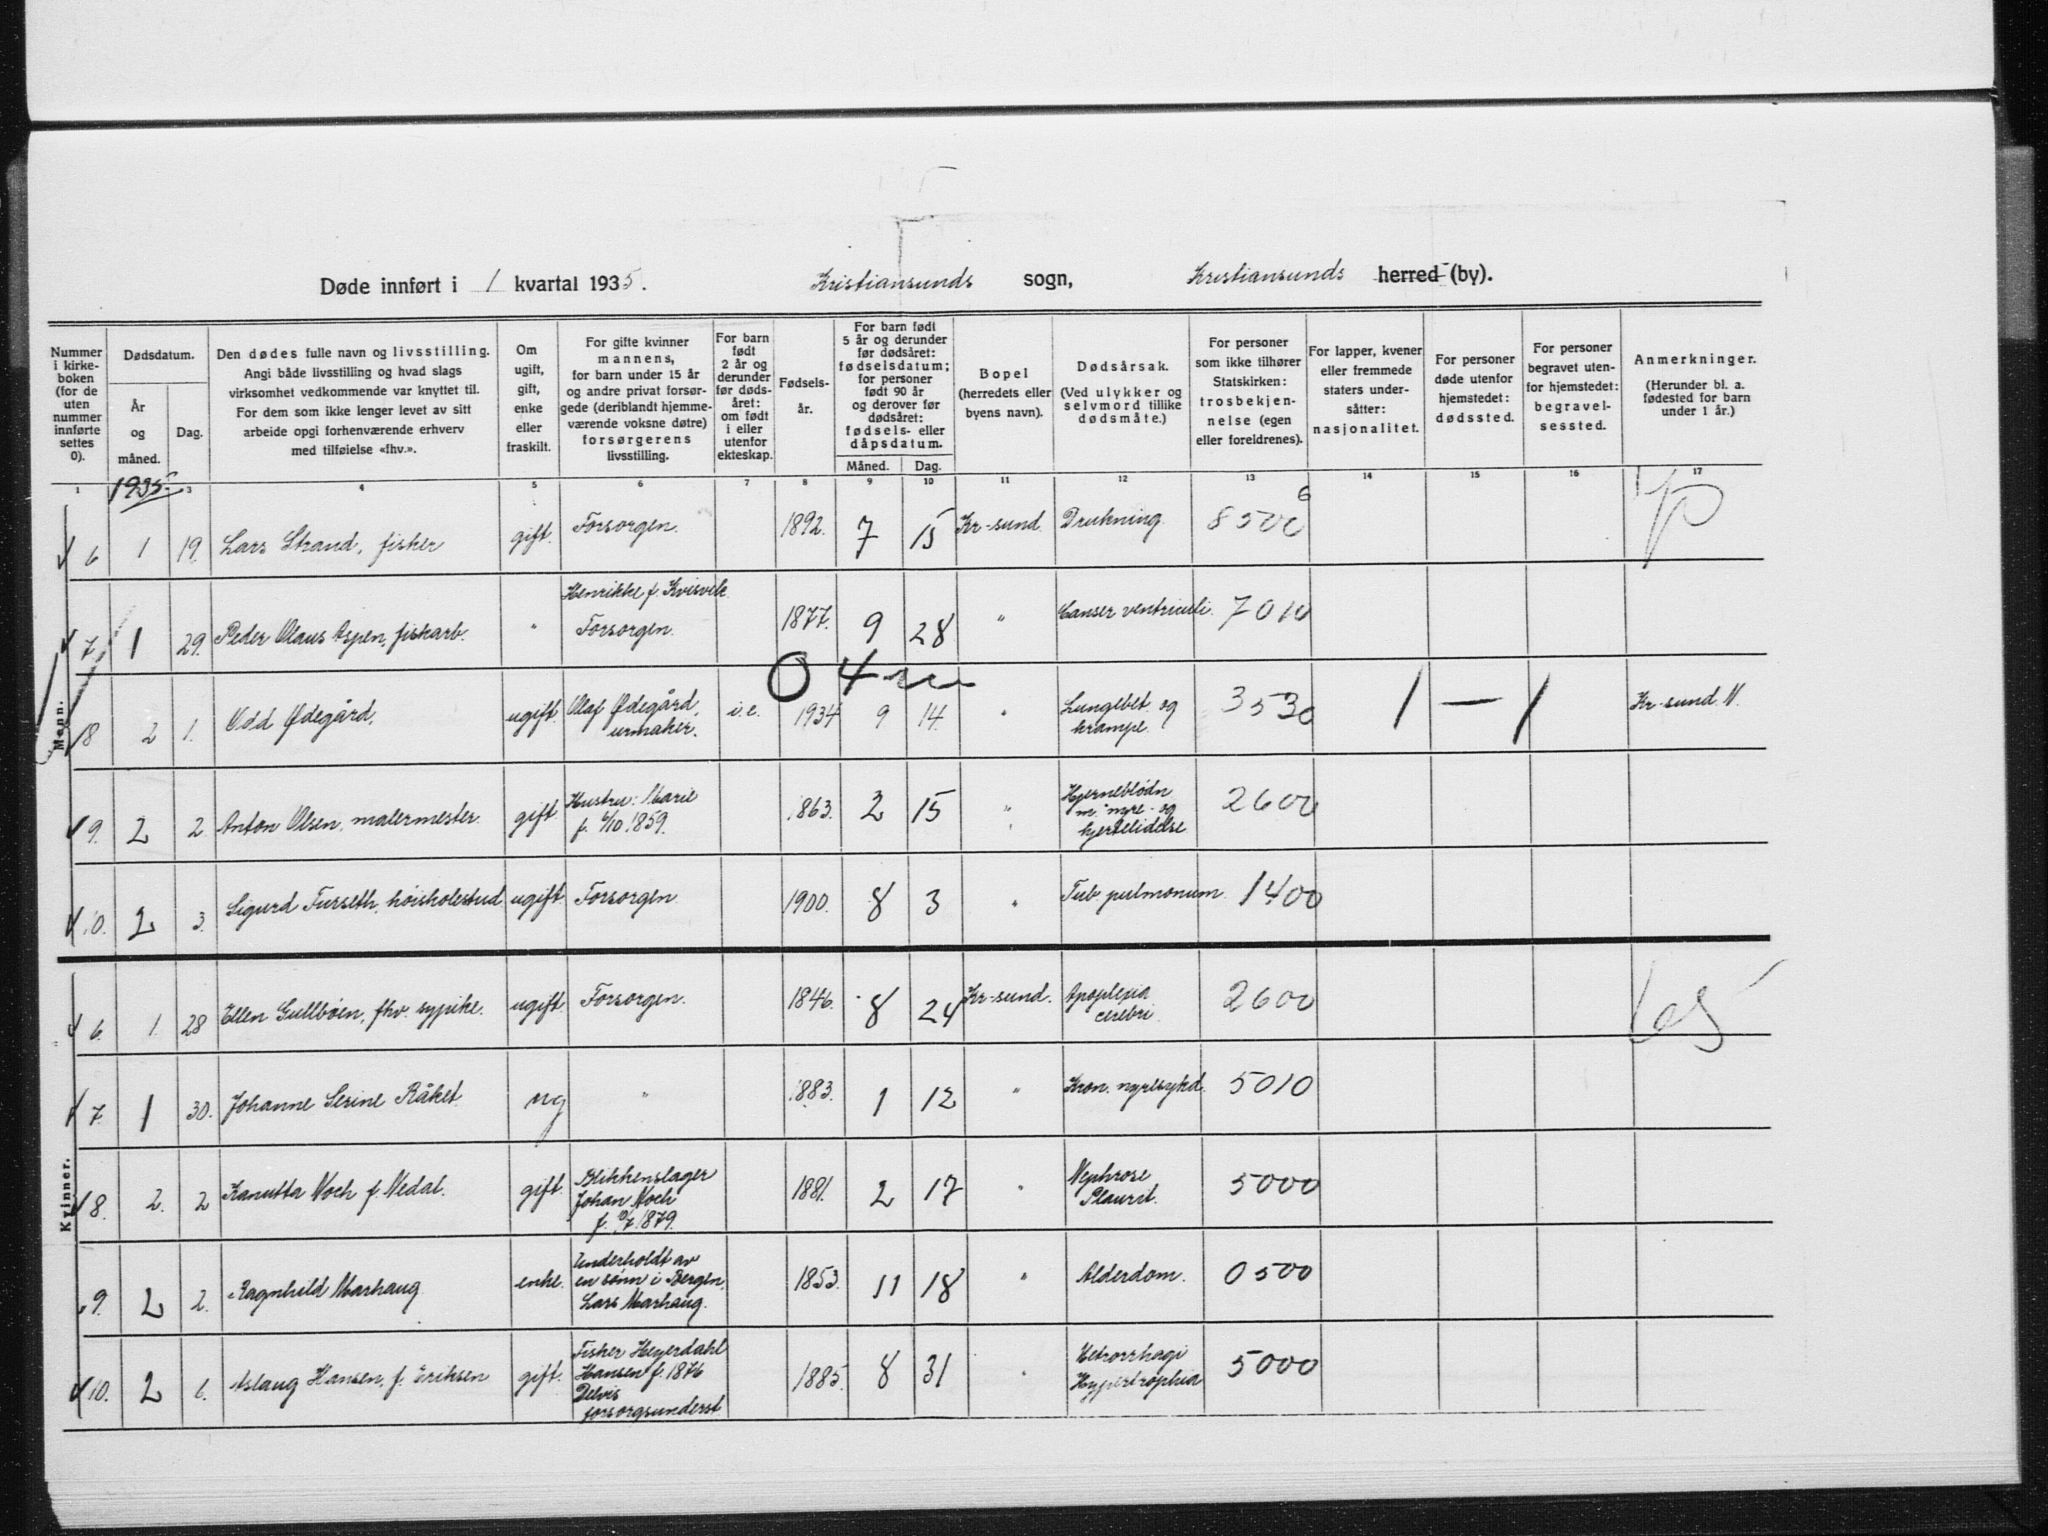 Døde innført i 1 kvartal 1935. Kristiansunds sogn, Kristiansunds herred (by).
Nummer i kirkeboken (for de uten nummer innførte settes 0).
Dødsdatum.
År og måned.
Dag.
Den dødes fulle navn og livsstilling. Angi både livsstilling og hvad slags virksomhet vedkommende var knyttet til. For dem som ikke lenger levet av sitt arbeide opgi forhenværende erhverv med tilføielse «fhv.».
Om ugift, gift, enke eller fraskilt.
For gifte kvinner mannens, for barn under 15 år og andre privat forsørgede (deriblandt hjemmeværende voksne døtre) forsørgerens livsstilling.
For barn født 2 år og derunder før dødsåret: om født i eller utenfor ekteskap.
Fødselsår.
For barn født 5 år og derunder før dødsåret: fødselsdatum; for personer født 90 år og derover før dødsåret: fødsels- eller dåpsdatum.
Måned. Dag.
Bopel (herredets eller byens navn).
Dødsårsak. (Ved ulykker og selvmord tillike dødsmåte.)
For personer som ikke tilhører Statskirken: trosbekjennelse (egen eller foreldrenes).
For lapper, kvener eller fremmede staters undersåtter: nasjonalitet.
For personer døde utenfor hjemstedet: dødssted.
For personer begravet utenfor hjemstedet: begravelsessted.
Anmerkninger. (Herunder bl. a. fødested for barn under 1 år.)
1 1935 3 4 5 6 7 8 9 10 11 12 13 14 15 16 17
Menn.
6 1 19. Lars Strand, fisker gift. Forsorgen. 1892. 7 15 Kr-sund. Drukning. 8500 6
7. 1 29. Peder Olaus Aspen, fiskarb. " Henrikke f. Kvisvik Forsorgen. 1877. 9 28 " Canser ventriculi. 7010
0 4
8 2 1. Odd Ødegård, ugift. Olaf Ødegård, urmaker. i.e. 1934 9 14. " Lungebet. og krampe. 3530 1 — 1 Kr-sund N.
9. 2 2. Anton Olsen, malermester. gift. Hustru: Marie f. 6/10 1859. 1863. 2 15 " Hjerneblødn m. nyre- og hjertelidelse 2600
10. 2 3. Sigurd Furseth, høiskolestud ugift. Forsorgen. 1900. 8 3 " Tub. pulmonum. 1400
Kvinner.
6. 1. 28 Ellen Gullbøen, fhv. sypike. ugift. Forsorgen. 1846. 8 24 Kr-sund. Apoplexia cerebri. 2600
7. 1 30. Johanne Serine Råket. ug " 1883. 1 12 " Kron. nyresykd. 5010
8. 2. 2 Kanutta Noch f. Nedal. gift. Blikkenslager Johan Noch f. /7 1879. 1881. 2 17 " Nephrose Plaurit. 5000
9. 2 2. Ragnhild Marhaug enke. Underholdt av en sønn i Bergen, Lars Marhaug. 1853. 11 18 " Alderdom. 0500
10. 2 6. Aslaug Hansen, f. Eriksen gift. Fisker Heyerdahl Hansen f. 1876 Delvis forsorgsunderst 1885. 8 31 " Hypertrophia 5000